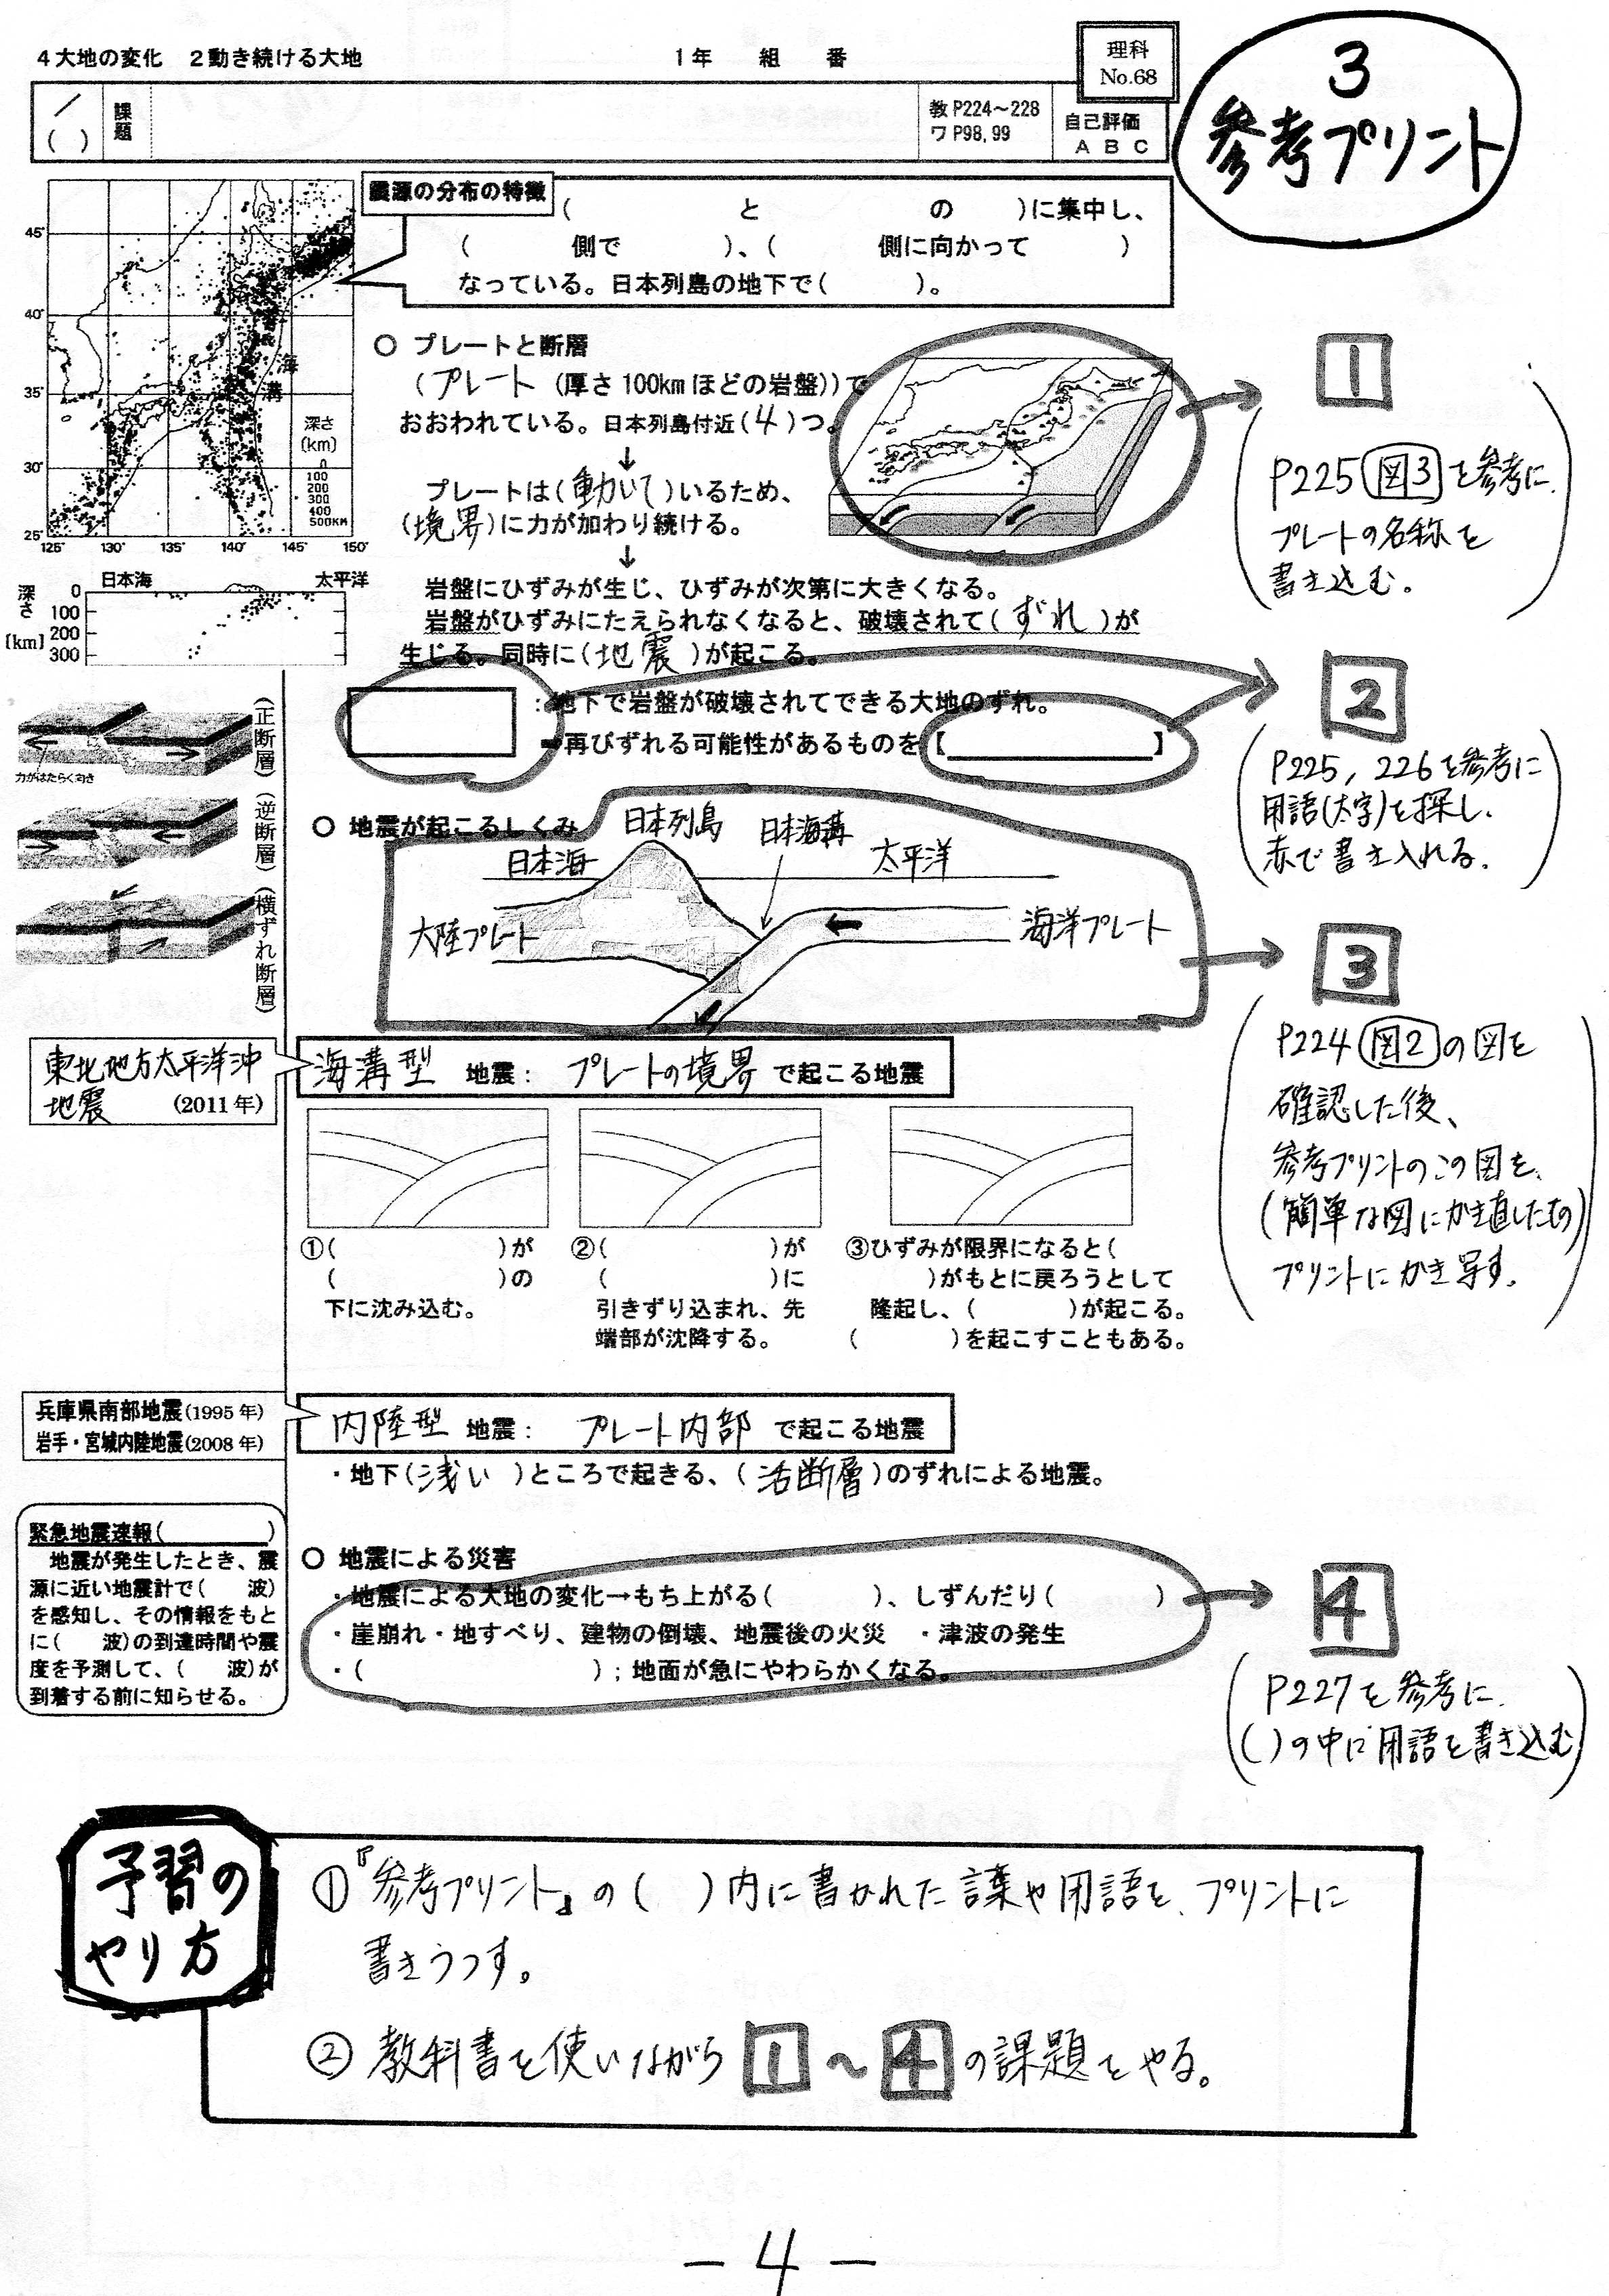 4大地の変化　2動き続ける大地　1年　組　番
理科
No.68
3
参考プリント
／
(　)
課題
教P224～228
ワP98,99
自己評価
A B C
震源の分布の特徴
(　と　の　)に集中し、
(　側で　)、(　側に向かって　)
なっている。日本列島の地下で(　)。
45°
40°
35°
30°
25°
125° 130° 135° 140° 145° 150°
海溝
深さ
(km)
0
100
200
300
400
500KM
日本海　太平洋
深さ
[km]
0
100
200
300
○ プレートと断層
(プレート (厚さ100kmほどの岩盤))で
おおわれている。日本列島付近(4)つ。
↓
プレートは(動いて)いるため、
(境界)に力が加わり続ける。
↓
岩盤にひずみが生じ、ひずみが次第に大きくなる。
岩盤がひずみにたえられなくなると、破壊されて(ずれ)が
生じる。同時に(地震)が起こる。
：地下で岩盤が破壊されてできる大地のずれ。
➡再びずれる可能性があるものを【　】
1
P225 図3 を参考に
プレートの名称を
書き込む。
2
P225, 226を参考に
用語(太字)を探し、
赤で書き入れる。
(正断層)
力がはたらく向き
(逆断層)
(横ずれ断層)
○ 地震が起こるしくみ
日本列島
日本海溝
日本海
太平洋
大陸プレート
海洋プレート
3
P224 図2 の図を
確認した後、
参考プリントのこの図を、
(簡単な図にかき直したもの)
プリントにかき写す。
東北地方太平洋沖
地震　(2011年)
海溝型　地震：　プレートの境界　で起こる地震
①(　)が
(　)の
下に沈み込む。
②(　)が
(　)に
引きずり込まれ、先
端部が沈降する。
③ひずみが限界になると(
)がもとに戻ろうとして
隆起し、(　)が起こる。
(　)を起こすこともある。
兵庫県南部地震(1995年)
岩手・宮城内陸地震(2008年)
内陸型　地震：　プレート内部　で起こる地震
・地下(浅い)ところで起きる、(活断層)のずれによる地震。
緊急地震速報(　)
地震が発生したとき、震
源に近い地震計で(　波)
を感知し、その情報をもと
に(　波)の到達時間や震
度を予測して、(　波)が
到着する前に知らせる。
○ 地震による災害
・地震による大地の変化→もち上がる(　)、しずんだり(　)
・崖崩れ・地すべり、建物の倒壊、地震後の火災　・津波の発生
・(　)；地面が急にやわらかくなる。
4
P227を参考に
( )の中に用語を書き込む
予習の
やり方
①『参考プリント』の(　)内に書かれた言葉や用語を、プリントに
書きうつす。
② 教科書を使いながら 1 ～ 4 の課題をやる。
－4－